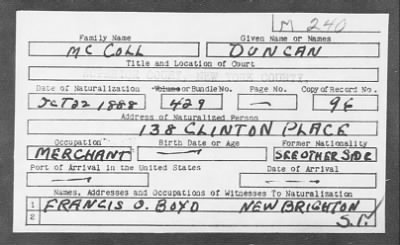 M 240
Family Name Given Name or Names
Mc COLL DUNCAN
Title and Location of Court
SUPERIOR COURT, NEW YORK COUNTY.
Date of Naturalization Volume or Bundle No. Page No. Copy of Record No.
OCT 22 1888 429 — 96
Address of Naturalized Person
138 CLINTON PLACE
Occupation Birth Date or Age Former Nationality
MERCHANT — SEE OTHER SIDE
Port of Arrival in the United States Date of Arrival
— —
Names, Addresses and Occupations of Witnesses To Naturalization
1 FRANCIS O. BOYD NEW BRIGHTON
2 S.I.